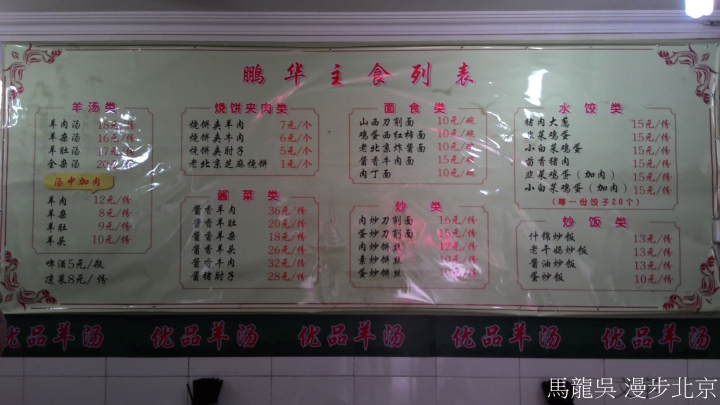 鹏华主食列表
羊汤类
羊肉汤 18元/份
羊杂汤 16元/份
羊肚汤 17元/份
全杂汤 20元/份
汤中加肉
羊肉 12元/份
羊杂 8元/份
羊肚 9元/份
羊头 10元/份
啤酒5元/瓶
凉菜8元/份
烧饼夹肉类
烧饼夹羊肉 7元/个
烧饼夹牛肉 6元/个
烧饼夹肘子 5元/个
老北京芝麻烧饼 1元/个
酱菜类
酱香羊肉 36元/份
酱香羊肚 20元/份
酱香羊杂 18元/份
酱香羊头 26元/份
酱香牛肉 32元/份
酱猪肘子 28元/份
面食类
山西刀削面 10元/碗
鸡蛋西红柿面 10元/碗
老北京炸酱面 10元/碗
酱香牛肉面 15元/碗
肉丁面 10元/碗
炒类
肉炒刀削面 16元/份
蛋炒刀削面 15元/份
肉炒饼丝 12元/份
素炒饼丝 10元/份
蛋炒饼丝 11元/份
水饺类
猪肉大葱 15元/份
韭菜鸡蛋 15元/份
小白菜鸡蛋 15元/份
茴香猪肉 15元/份
韭菜鸡蛋(加肉) 15元/份
小白菜鸡蛋(加肉) 15元/份
(每一份饺子20个)
炒饭类
什锦炒饭 13元/份
老干妈炒饭 13元/份
酱油炒饭 13元/份
蛋炒饭 10元/份
优品羊汤 优品羊汤 优品羊汤 优品羊汤 优品羊汤
馬龍吳 漫步北京